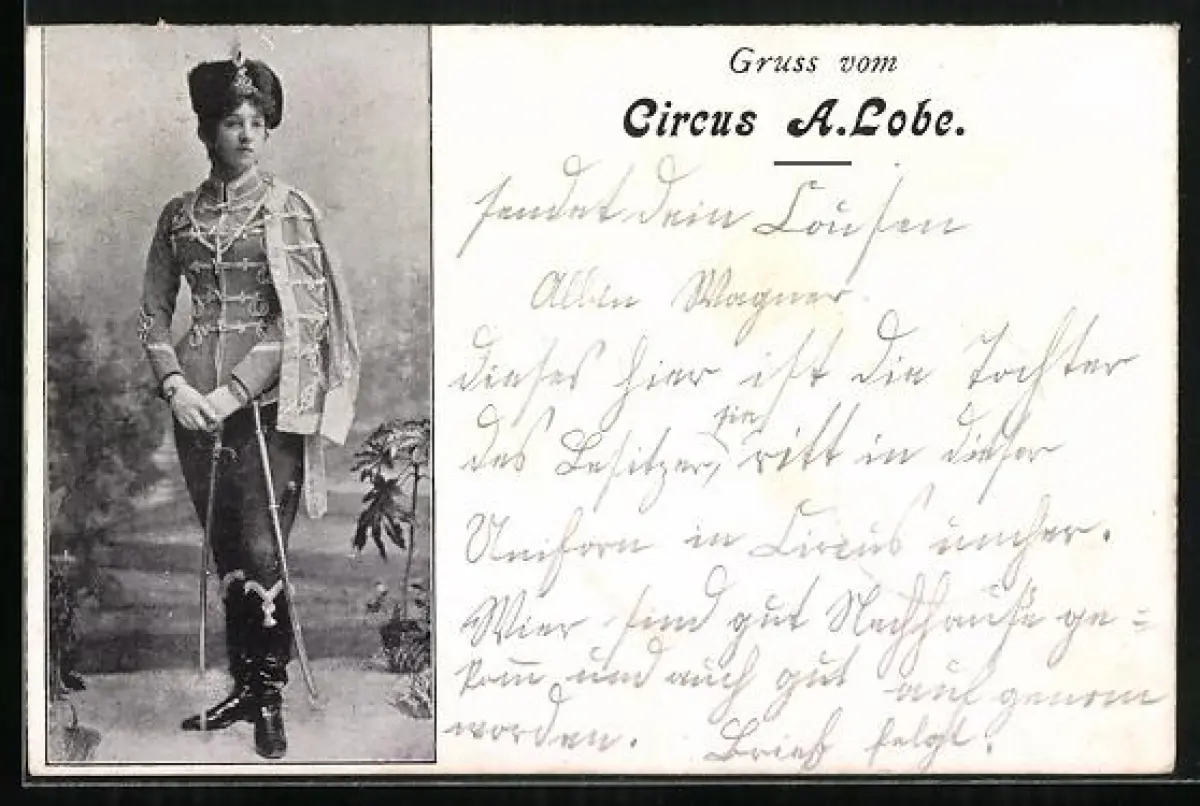 Gruss vom
Circus A. Lobe.
sendet dein Cousen
Albin Wagner.
dieses hier ist die Tochter
des Besitzer, sie ritt in dieser
Uniform in Circus umher.
Wier sind gut Nachhause ge=
kom̅ und auch gut auf genom
worden. Brief folgt.